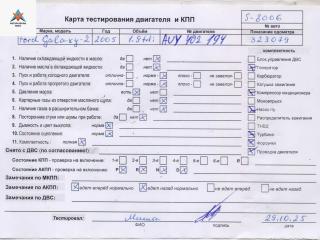 Карта тестирования двигателя и КПП
S-2006
№ авто
Марка, модель Год Объём № двигателя Показание одометра
Ford Galaxy-2 2005 1.9tdi AUY 702 794 323079
комплектность
1. Наличие охлаждающей жидкости в масле: да нет
2. Наличие масла в охлаждающей жидкости: да нет
3. Пуск и работа холодного двигателя: отлично норма плохо не заведен
4. Пуск и работа прогретого двигателя: отлично норма плохо не заведен
5. Давление масла: есть нет
6. Картерные газы из отверстия масляного щупа: да нет норма
7. Наличие газа в расширительном бачке: да нет
8. Посторонние стуки или шумы при работе: да нет
9. Дымность и цвет выхлопа: норма
10. Состояние сцепления: норма
11. Комплектность: полная
Блок управления ДВС
Катушка
Карбюратор
Катушка зажигания
Компрессор кондиционера
Моновпрыск
Насос гу
Распределитель зажигания
ТНВД
Турбина
Форсунки
Проводка двигателя
Снято с ДВС (по согласованию):
Состояние КПП - проверка на включение: 1-я 2-я 3-я 4-я 5-я R
Состояние АКПП - проверка на включение: P R N D
Замечания по МКПП:
Замечания по АКПП: едет вперед нормально едет назад нормально
Замечания по ДВС:
Тестировал: Миша 29.10.25
ФИО подпись дата